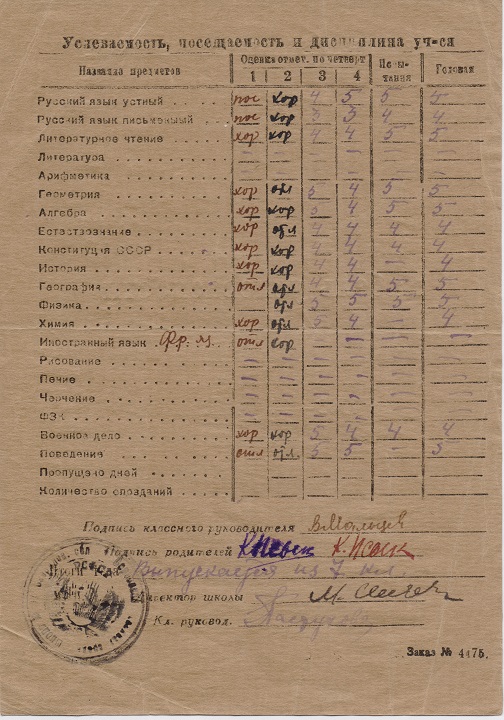 Успеваемость, посещаемость и дисциплина уч-ся
Название предметов Оценка отмет. по четверт Испытания Годовая
1 2 3 4
Русский язык устный пос хор 4 5 5 5
Русский язык письменный пос хор 3 3 4 4
Литературное чтение хор хор 4 4 5 5
Литература
Арифметика
Геометрия хор отл 5 4 5 5
Алгебра хор хор 5 4 5 5
Естествознание хор отл 4 4 4 4
Конституция СССР хор хор 4 4 4 4
История хор хор 4 4 - 4
География отл отл 4 4 5 5
Физика отл 5 5 5 5
Химия хор отл 5 4 - 4
Иностранный язык Фр. яз. отл хор
Рисование
Пение
Черчение
ФЗК
Военное дело хор хор 5 4 4 4
Поведение отл отл. 5 5 - 5
Пропущено дней
Количество опозданий
Подпись классного руководителя
Подпись родителей
Выпускается из 7 кл.
школы
Кл. руковод.
Заказ № 4475.